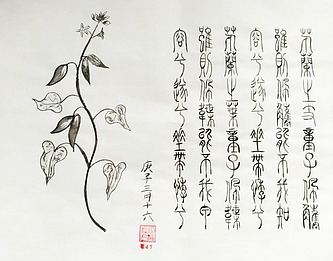 芄蘭之支童子佩觿
雖則佩觿能不我知
容兮遂兮垂帶悸兮
芄蘭之葉童子佩韘
雖則佩韘能不我甲
容兮遂兮垂帶悸兮
庚子三月十六